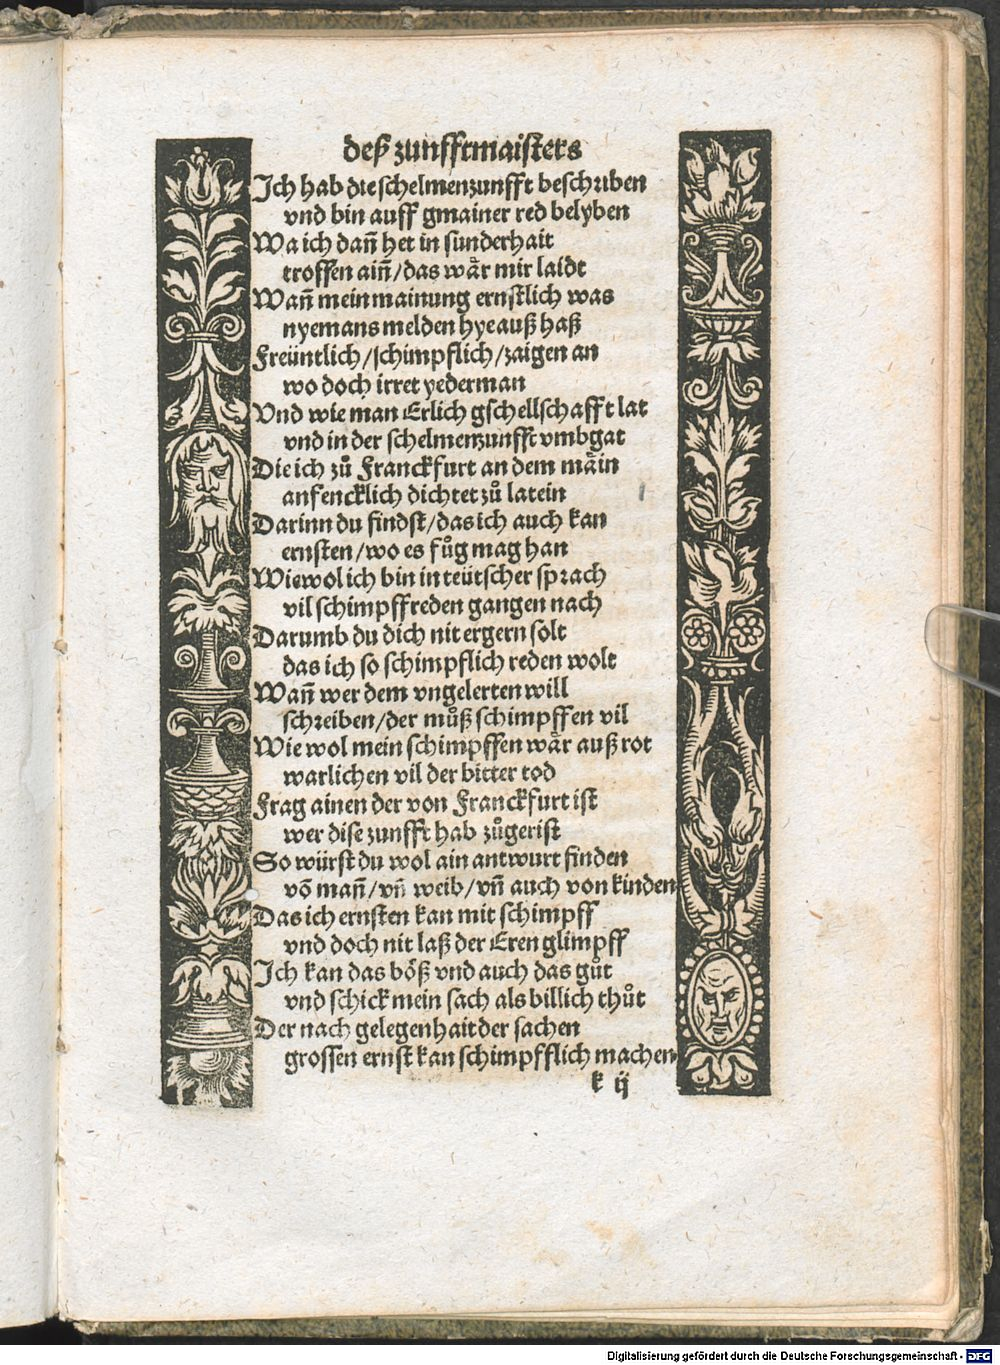 deß zunfftmaisters
Ich hab die schelmenzunfft beschriben
vnd bin auff gmainer red belyben
Wa ich dañ het in sunderhait
troffen aiñ/das wår mir laidt
Wañ mein mainung ernstlich was
nyemans melden hye auß haß
Freüntlich/schimpflich/zaigen an
wo doch irret yederman
Vnd wie man Erlich gschellschafft lat
vnd in der schelmenzunfft vmbgat
Die ich zů Franckfurt an dem mäin
anfencklich dichtet zů latein
Darinn du findst/das ich auch kan
ernsten/wo es fůg mag han
Wiewol ich bin in teütscher sprach
vil schimpffreden gangen nach
Darumb du dich nit ergern solt
das ich so schimpflich reden wolt
Wañ wer dem vngelerten will
schreiben/der můß schimpffen vil
Wie wol mein schimpffen wär auß rot
warlichen vil der bitter tod
Frag ainen der von Franckfurt ist
wer dise zunfft hab zůgerist
So würst du wol ain antwurt finden
võ mañ/vñ weib/vñ auch von kinden
Das ich ernsten kan mit schimpff
vnd doch nit laß der Eren glimpff
Ich kan das böß vnd auch das gůt
vnd schick mein sach als billich thůt
Der nach gelegenhait der sachen
grossen ernst kan schimpfflich machen
k ij
Digitalisierung gefördert durch die Deutsche Forschungsgemeinschaft - DFG